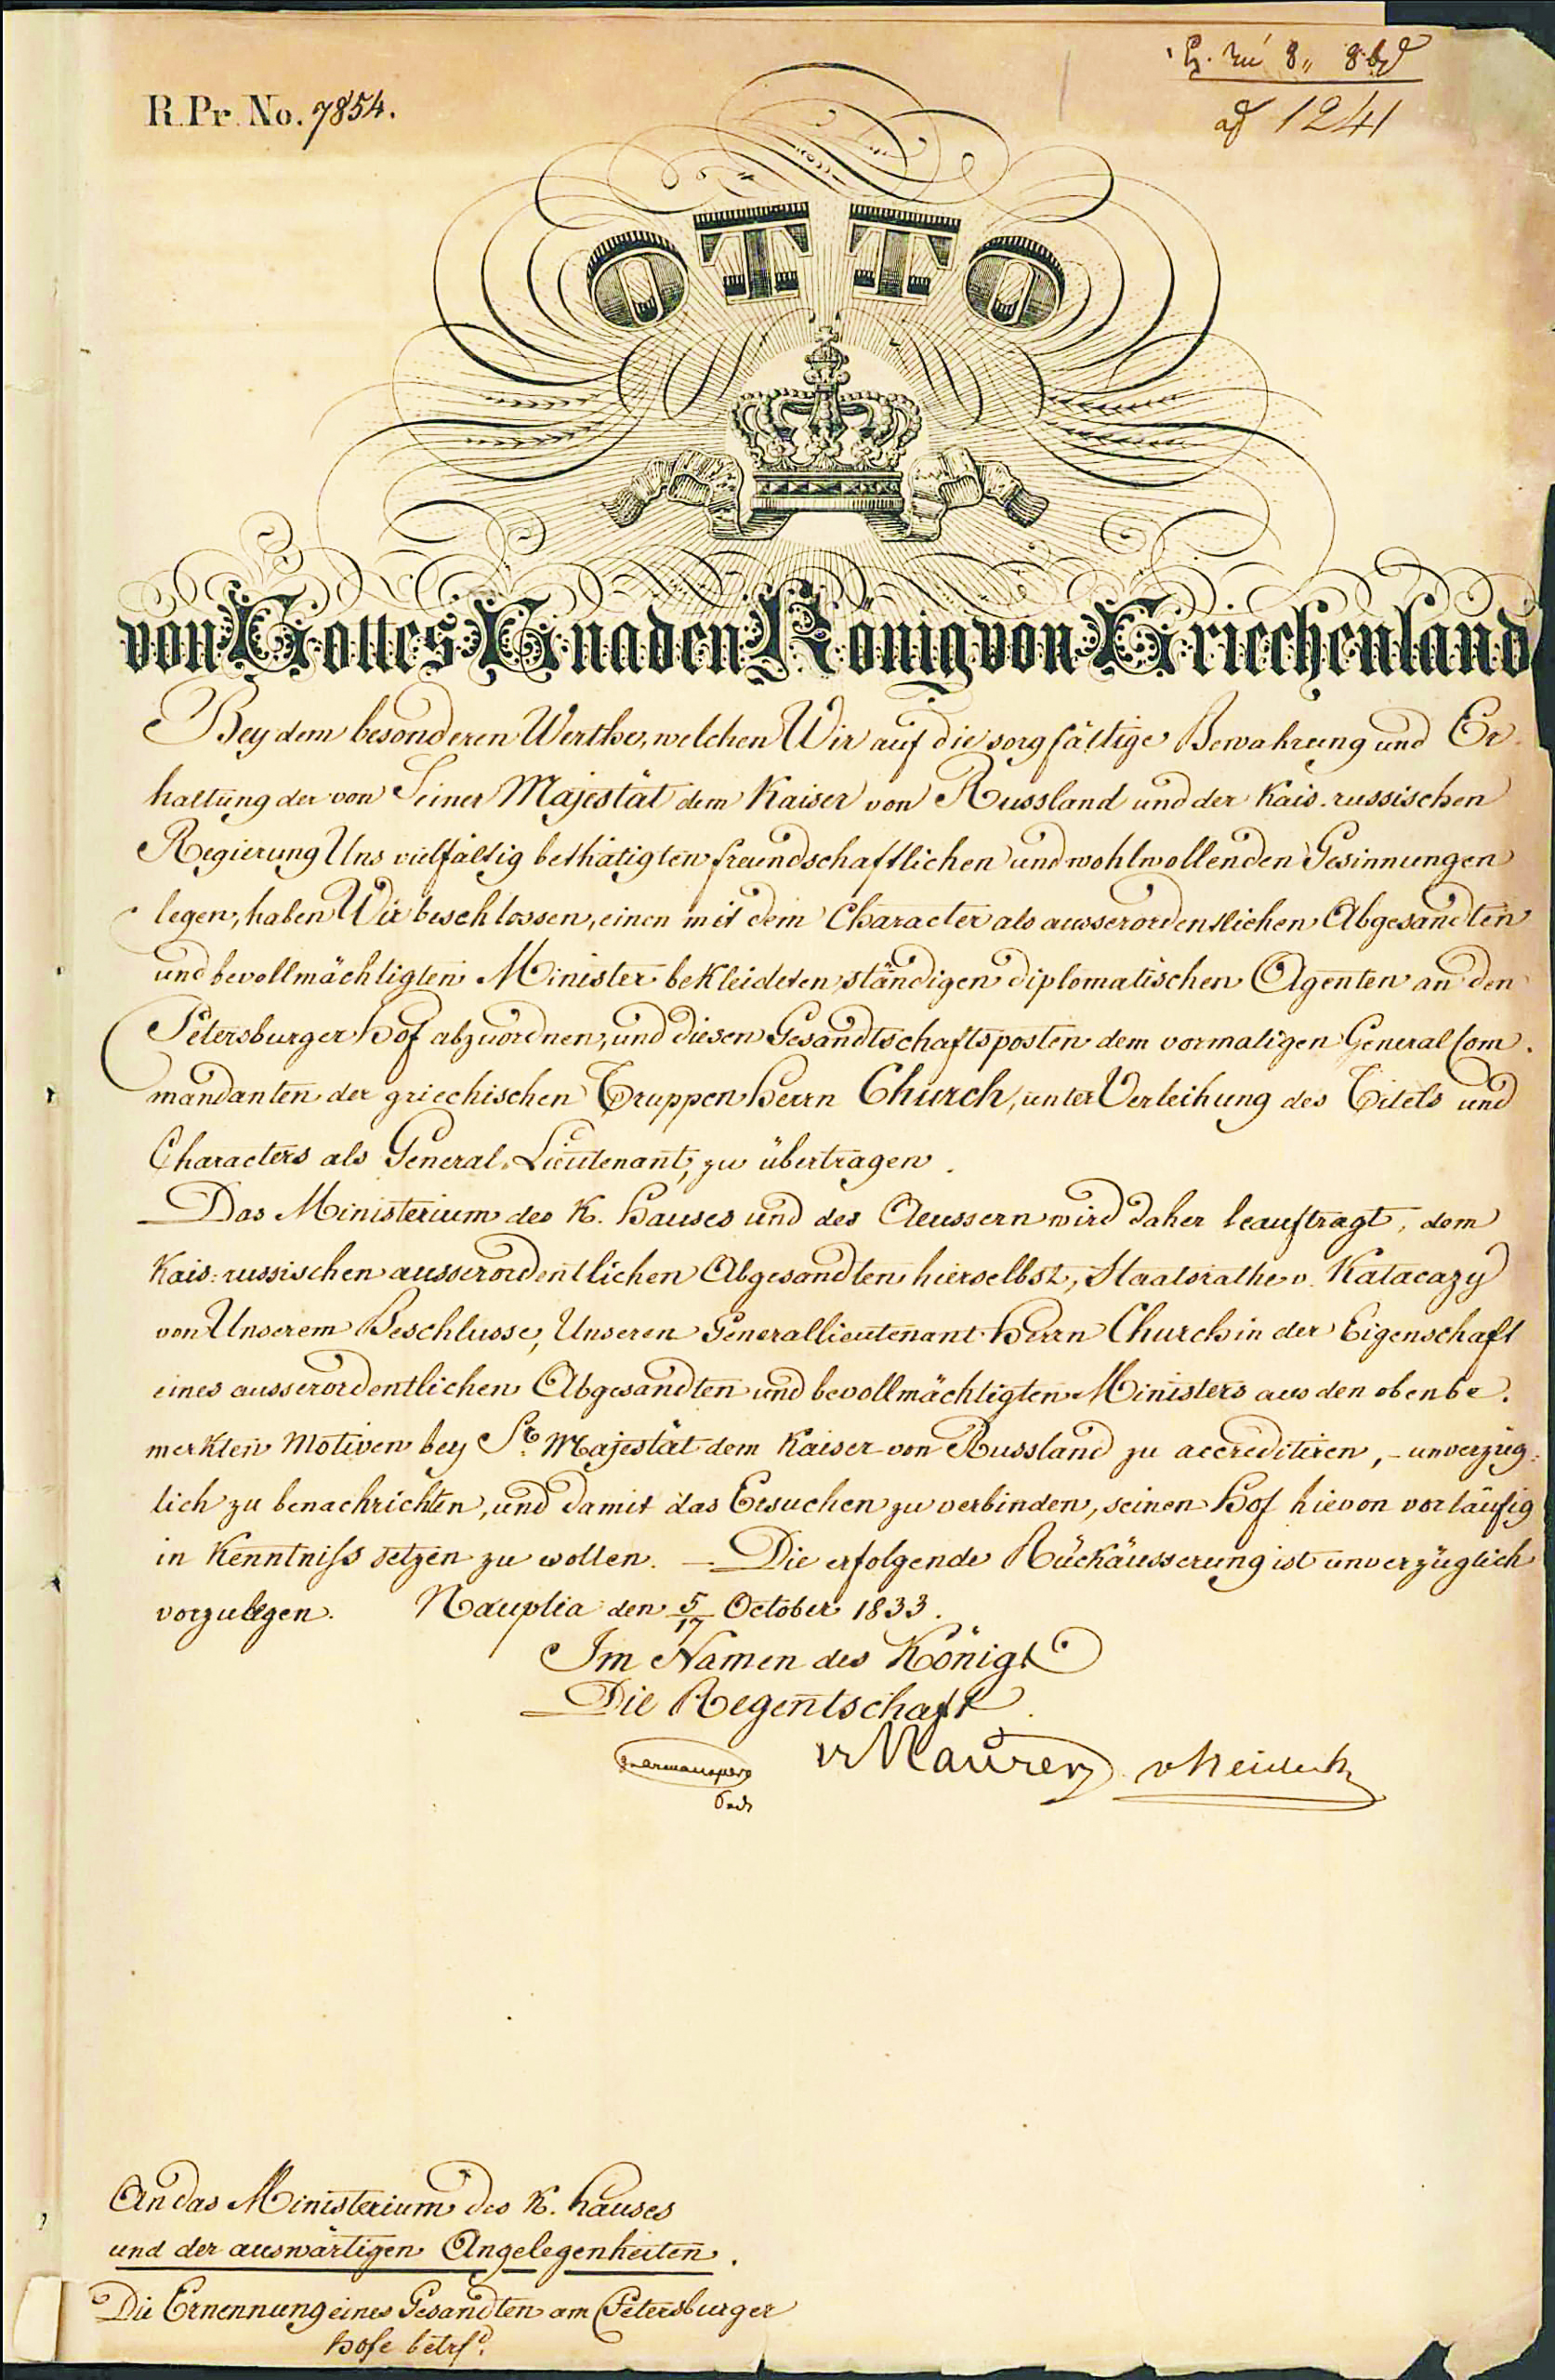 R. Pr. No. 7854.
ad 1241
OTTO
von Gottes Gnaden König von Griechenland
Bey dem besonderen Werthe, welchen Wir auf die sorgfältige Bewahrung und Er-
haltung der von Seiner Majestät dem Kaiser von Russland und der Kais. russischen
Regierung Uns vielfältig bethätigten freundschaftlichen und wohlwollenden Gesinnungen
legen, haben Wir beschlossen, einen mit dem Character als ausserordentlichen Abgesandten
und bevollmächtigten Minister bekleideten ständigen diplomatischen Agenten an den
Petersburger Hof abzuordnen, und diesen Gesandtschaftsposten dem vormaligen General Com-
mandanten der griechischen Truppen Herrn Church, unter Verleihung des Titels und
Characters als General-Lieutenant, zu übertragen.
Das Ministerium des K. Hauses und des Aeussern wird daher beauftragt, dem
Kais: russischen ausserordentlichen Abgesandten hierselbst, Staatsrathe v. Katacazy
von Unserem Beschlusse, Unseren Generallieutenant Herrn Church in der Eigenschaft
eines ausserordentlichen Abgesandten und bevollmächtigten Ministers aus den obenbe-
merkten Motiven bey Sr. Majestät dem Kaiser von Russland zu accreditiren, - unverzüg-
lich zu benachrichten, und damit das Ersuchen zu verbinden, seinen Hof hievon vorläufig
in Kenntniß setzen zu wollen. — Die erfolgende Rückäusserung ist unverzüglich
vorzulegen. Nauplia den 5/17 October 1833.
Im Namen des Königs
Die Regentschaft
v Maurer v Heideck
An das Ministerium des K. Hauses
und der auswärtigen Angelegenheiten.
Die Ernennung eines Gesandten am Petersburger
Hofe betrfd.